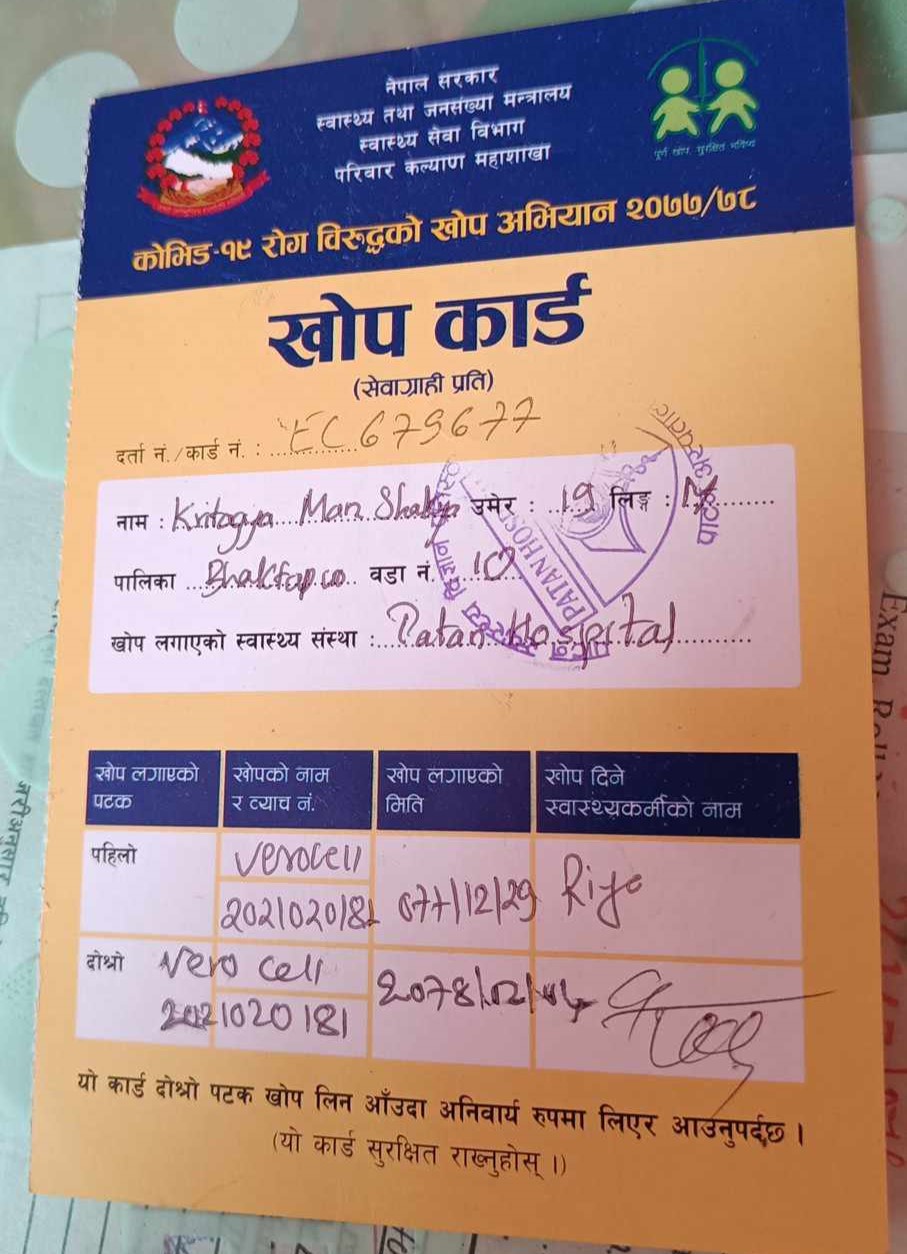 नेपाल सरकार
स्वास्थ्य तथा जनसंख्या मन्त्रालय
स्वास्थ्य सेवा विभाग
परिवार कल्याण महाशाखा
पूर्ण खोप, सुरक्षित भविष्य
कोभिड-१९ रोग विरुद्धको खोप अभियान २०७७/७८
खोप कार्ड
(सेवाग्राही प्रति)
दर्ता नं./कार्ड नं. : EC 679677
नाम : Kritagya Man Shakya उमेर : 19 लिङ्ग :
पालिका Bhaktapur वडा नं. 10
खोप लगाएको स्वास्थ्य संस्था : Patan Hospital
PATAN HOSPITAL
खोप लगाएको पटक
खोपको नाम र व्याच नं.
खोप लगाएको मिति
खोप दिने स्वास्थ्यकर्मीको नाम
पहिलो
Verocell
077/12/29
दोश्रो
Vero cell
2021020181
यो कार्ड दोश्रो पटक खोप लिन आँउदा अनिवार्य रुपमा लिएर आउनुपर्दछ ।
(यो कार्ड सुरक्षित राख्नुहोस् ।)
Exam